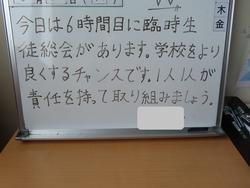 木
金
今日は6時間目に臨時生
徒総会があります。学校をより
良くするチャンスです。1人1人が
責任を持って取り組みましょう。